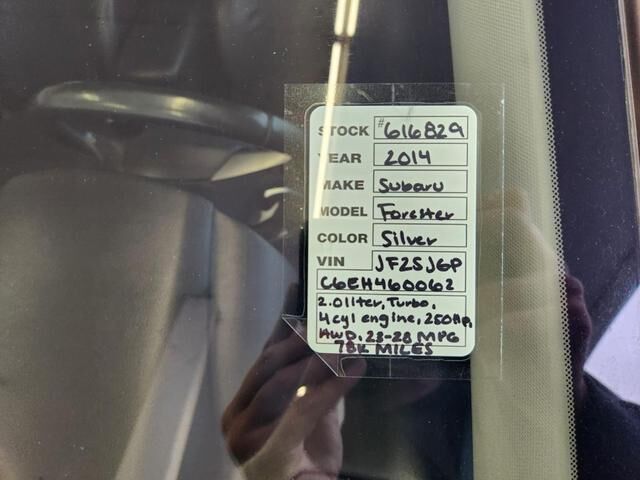 STOCK #616829
YEAR 2014
MAKE Subaru
MODEL Forester
COLOR Silver
VIN JF2SJGP
C6EH460062
2.0liter, Turbo,
4cyl engine, 250Hp,
AWD, 23-28 MPG
78K MILES